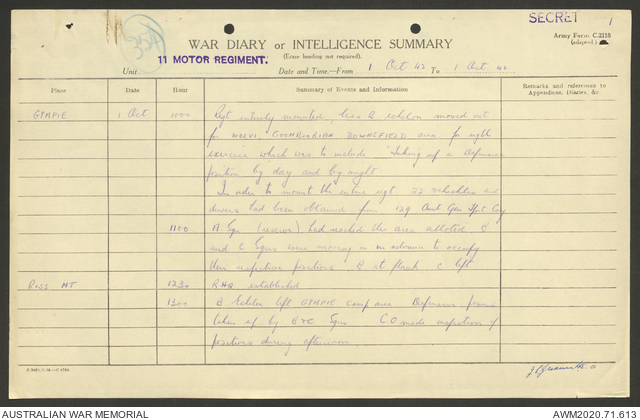 SECRET 1
Army Form C.2118
(adapted.)
354
WAR DIARY or INTELLIGENCE SUMMARY
(Erase heading not required).
Unit 11 MOTOR REGIMENT.
Date and Time.—From 1 Oct 42 To 1 Oct 42
Place Date Hour Summary of Events and Information Remarks and references to Appendices, Diaries, &c
GYMPIE 1 Oct 1000 Regt entirely mounted, less B echelon moved out
for WOLVI, GOOMBOORIAN area for regtl
exercise which was to include "Taking up a Defensive
position by day and by night
In order to mount the entire regt 22 vehicles and
drivers had been obtained from 129 Aust Gen Tpt Coy
1100 A Sqn had reached the area allotted B
and C Sqns were moving in to occupy
their respective positions B rt flank C left
ROSS MT 1230 RHQ established
1300 B Echelon left GYMPIE camp area Defensive posns
taken up by B & C Sqns CO made inspection of
positions during afternoon.
AUSTRALIAN WAR MEMORIAL
AWM2020.71.613